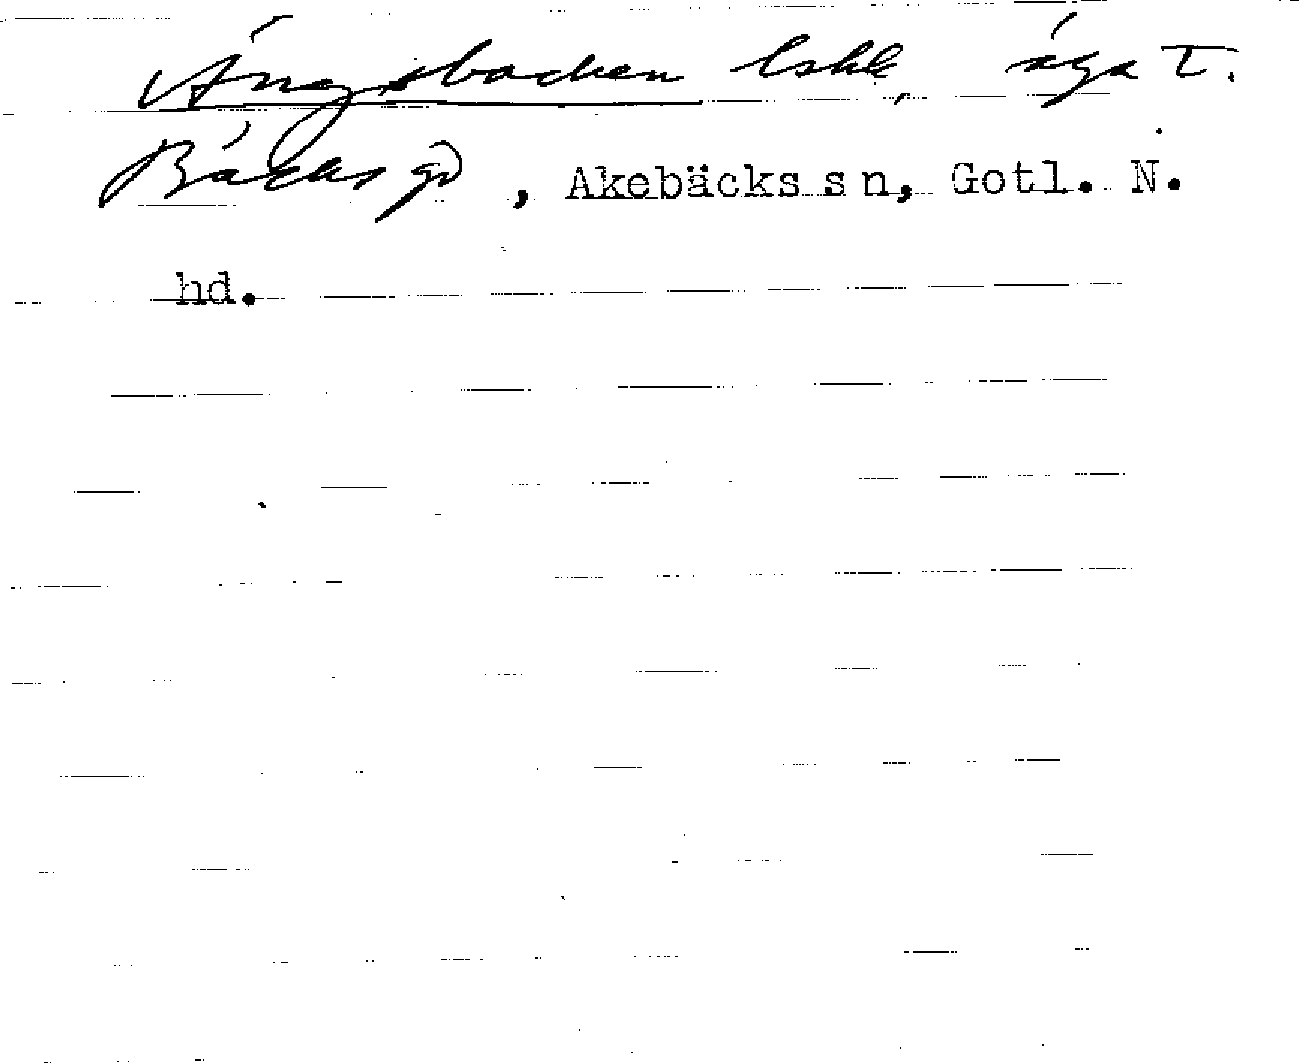 Ängsbacken lskl, äga T.
Bäcks gd, Akebäcks sn, Gotl. N.
hd.